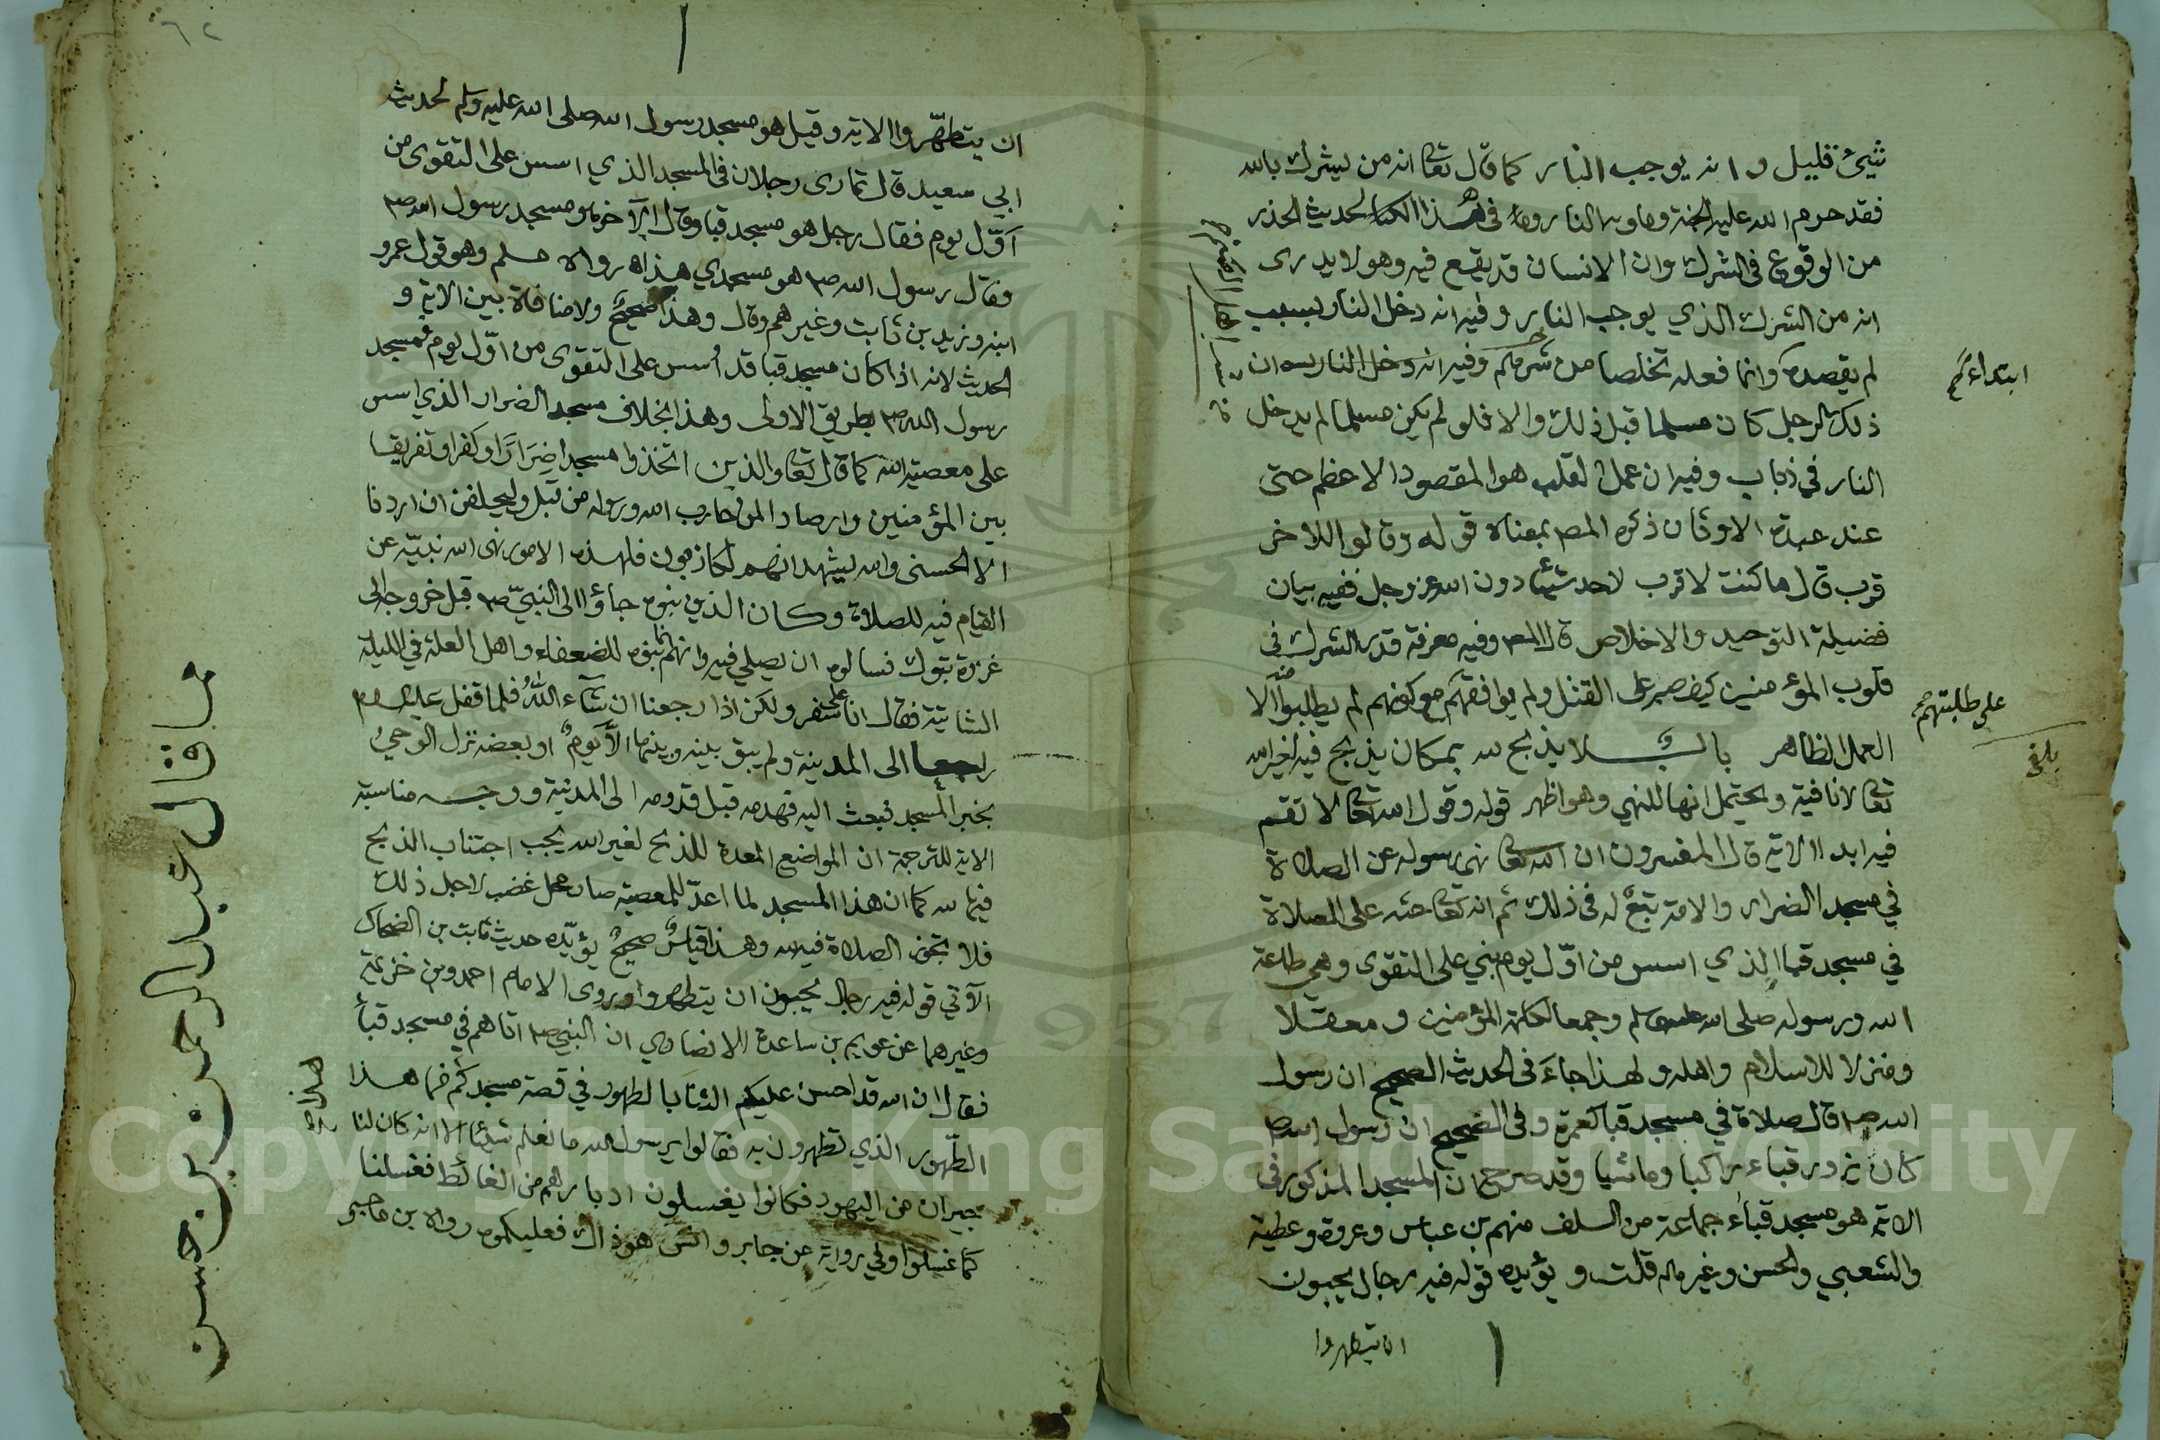 شيئ قليل وانه يوجب النار كما قال تعا انه من يشرك بالله
فقد حرم الله عليه الجنة وماويه النار وفي هذا الحديث الحذر
من الوقوع في الشرك وان الانسان قد يقع فيه وهو لا يدرى
انه من الشرك الذي يوجب النار وفيه انه دخل النار بسبب
لم يقصده وانما فعله تخلصا من شرهم وفيه ان
ذلك الرجل كان مسلما قبل ذلك والا فلو لم يكن مسلما لم يدخل
النار في ذباب وفيه ان عمل القلب هو المقصود الاعظم حتى
عند عبدة الاوثان ذكره المص بمعناه قوله وقالو اللاخر
قرب قال ما كنت لاقرب لاحد شيئا دون الله عز وجل ففيه بيان
فضيلة التوحيد والاخلاص قال المص وفيه معرفة قدر الشرك في
قلوب المؤمنين كيف صبر على القتل ولم يوافقهم مع كونهم لم يطلبوا منه الا
العمل الظاهر باب لا يذبح لله بمكان يذبح فيه لغير الله
تعا لا نافية ويحتمل انها للنهي وهو اظهر قوله وقول الله تعا لا تقم
فيه ابدا الاية قال المفسرون ان الله تعا نهى رسوله عن الصلاة
في مسجد الضرار والامة تبع له في ذلك ثم انه تعا حثه على الصلاة
في مسجد قبا الذي اسس من اول يوم بني على التقوى وهي طاعة
الله ورسوله صلى الله عليه وسلم وجمعا لكلمة المؤمنين ومعقلا
ومنزلا للاسلام واهله ولهذا جاء في الحديث الصحيح ان رسول
الله صم قال صلاة في مسجد قبا كعمرة وفي الصحيح ان رسول الله صم
كان يزور قباء راكبا وماشيا وقد صرح ان المسجد المذكور في
الاية هو مسجد قباء جماعة من السلف منهم بن عباس وعروة وعطية
والشعبي والحسن وغيرهم قلت ويؤيده قوله فيه رجال يحبون
ان يتطهروا
ابتداءكم
على طلبتهم
بلغ
ان يتطهّروا الاية وقيل هو مسجد رسول الله صلى الله عليه وسلم لحديث
ابي سعيد قال تمارى رجلان في المسجد الذي اسس على التقوى من
اوّل يوم فقال رجل هو مسجد قبا وقال الآخر هو مسجد رسول الله صم
فقال رسول الله صم هو مسجدي هذا رواه مسلم وهو قول عمر و
ابنه وزيد بن ثابت وغيرهم وقال وهذا صحيح ولا منافاة بين الاية و
الحديث لانه اذا كان مسجد قبا قد أسس على التقوى من اوّل يوم فمسجد
رسول الله صم بطريق الاولى وهذا بخلاف مسجد الضرار الذي اسس
على معصية الله كما قال تعا والذين اتخذوا مسجدا ضرارا وكفرا وتفريقا
بين المؤمنين وارصادا لمن حارب الله ورسوله من قبل وليحلفن ان اردنا
الا الحسنى والله يشهد انهم لكاذبون فلهذه الامور نهى الله نبيّه عن
القيام فيه للصلاة وكان الذين بنوه جاؤا الى النبيّ صم قبل خروجه الى
غزوة تبوك فسالوه ان يصلي فيه وانهم انما بنوه للضعفاء واهل العلة في الليلة
الشاتية فقال انا على سفر ولكن اذا رجعنا ان شاء الله فلما قفل عليه السلام
راجعا الى المدينة ولم يبق بينه وبينها الا يوم او بعضه نزل الوحي
بخبر المسجد فبعث اليه فهدمه قبل قدومه الى المدينة ووجه مناسبة
الاية للترجمة ان المواضع المعدة للذبح لغير الله يجب اجتناب الذبح
فيها لله كما ان هذا المسجد لما اعدّ للمعصية صار محل غضب لاجل ذلك
فلا تجوز الصلاة فيه لله وهذا قياس صحيح يؤيّده حديث ثابت بن الضحاك
الآتي قوله فيه رجال يحبون ان يتطهروا وروى الامام احمد وبن خزيمة
وغيرهما عن عويم بن ساعدة الانصاري ان النبي صم اتاهم في مسجد قباء
فقال ان الله قد احسن عليكم الثنا بالطهور في قصة مسجدكم فما هذا
الطّهور الذي تطهرون به فقالوا يرسول الله ما نعلم شيئا الا انه كان لنا
جيران من اليهود فكانوا يغسلون ادبارهم من الغائط فغسلنا
كما غسلوا وفي رواية عن جابر وانس هو ذاك فعليكموه رواه بن ماجه
قال عبد الرحمن بن حسن
٦٢
Copyright © King Saud University
1957